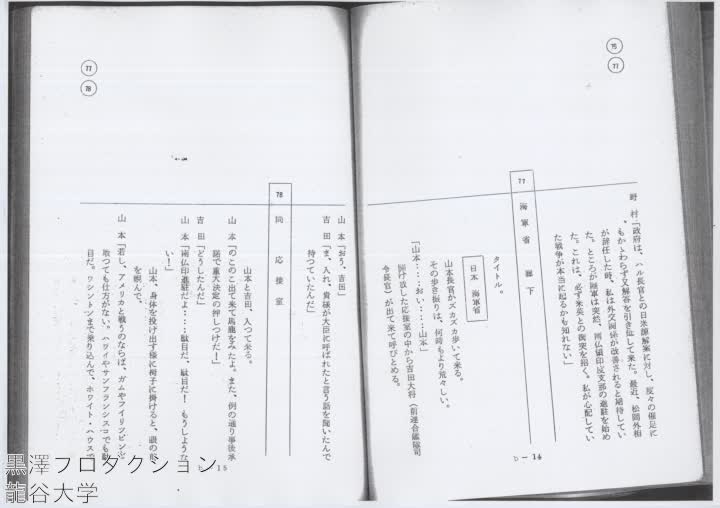 75
77
野村「政府は、ハル長官との日米諒解案に対し、度々の催足に
もかゝわらず又解答を引き延して来た。最近、松岡外相
が辞任した時、私は外交関係が改善されると期待してい
た。ところが陸軍は突然、南仏領印度支那の進駐を始め
た。これは、必ず米英との衝突を招く。私が心配してい
た戦争が本当に起るかも知れない」
77 海軍省 廊下
タイトル。
日本 海軍省
山本長官がズカズカ歩いて来る。
その歩き振りは、何時もより荒々しい。
「山本……おい……山本」
開け放した応接室の中から吉田大将(前連合艦隊司
令長官)が出て来て呼びとめる。
b-14
77
78
山本「おう、吉田」
吉田「ま、入れ、貴様が大臣に呼ばれたと言う話を聞いたんで
待つていたんだ」
78 同 応接室
山本と吉田、入つて来る。
山本「のこのこ出て来て馬鹿をみたよ。また、例の通り事後承
諾で重大決定の押しつけだ!」
吉田「どうしたんだ」
山本「南仏印進駐だよ……駄目だ、駄目だ! もうしような
い!」
山本、身体を投げ出す様に椅子に掛けると、眼の前
を睨んで、
山本「若し、アメリカと戦うのならば、ガムやフイリツピンを
取つても仕方がない。ハワイやサンフランシスコでも駄
目だ。ワシントンまで乗り込んで、ホワイト・ハウスで
b-15
黒澤プロダクション
龍谷大学